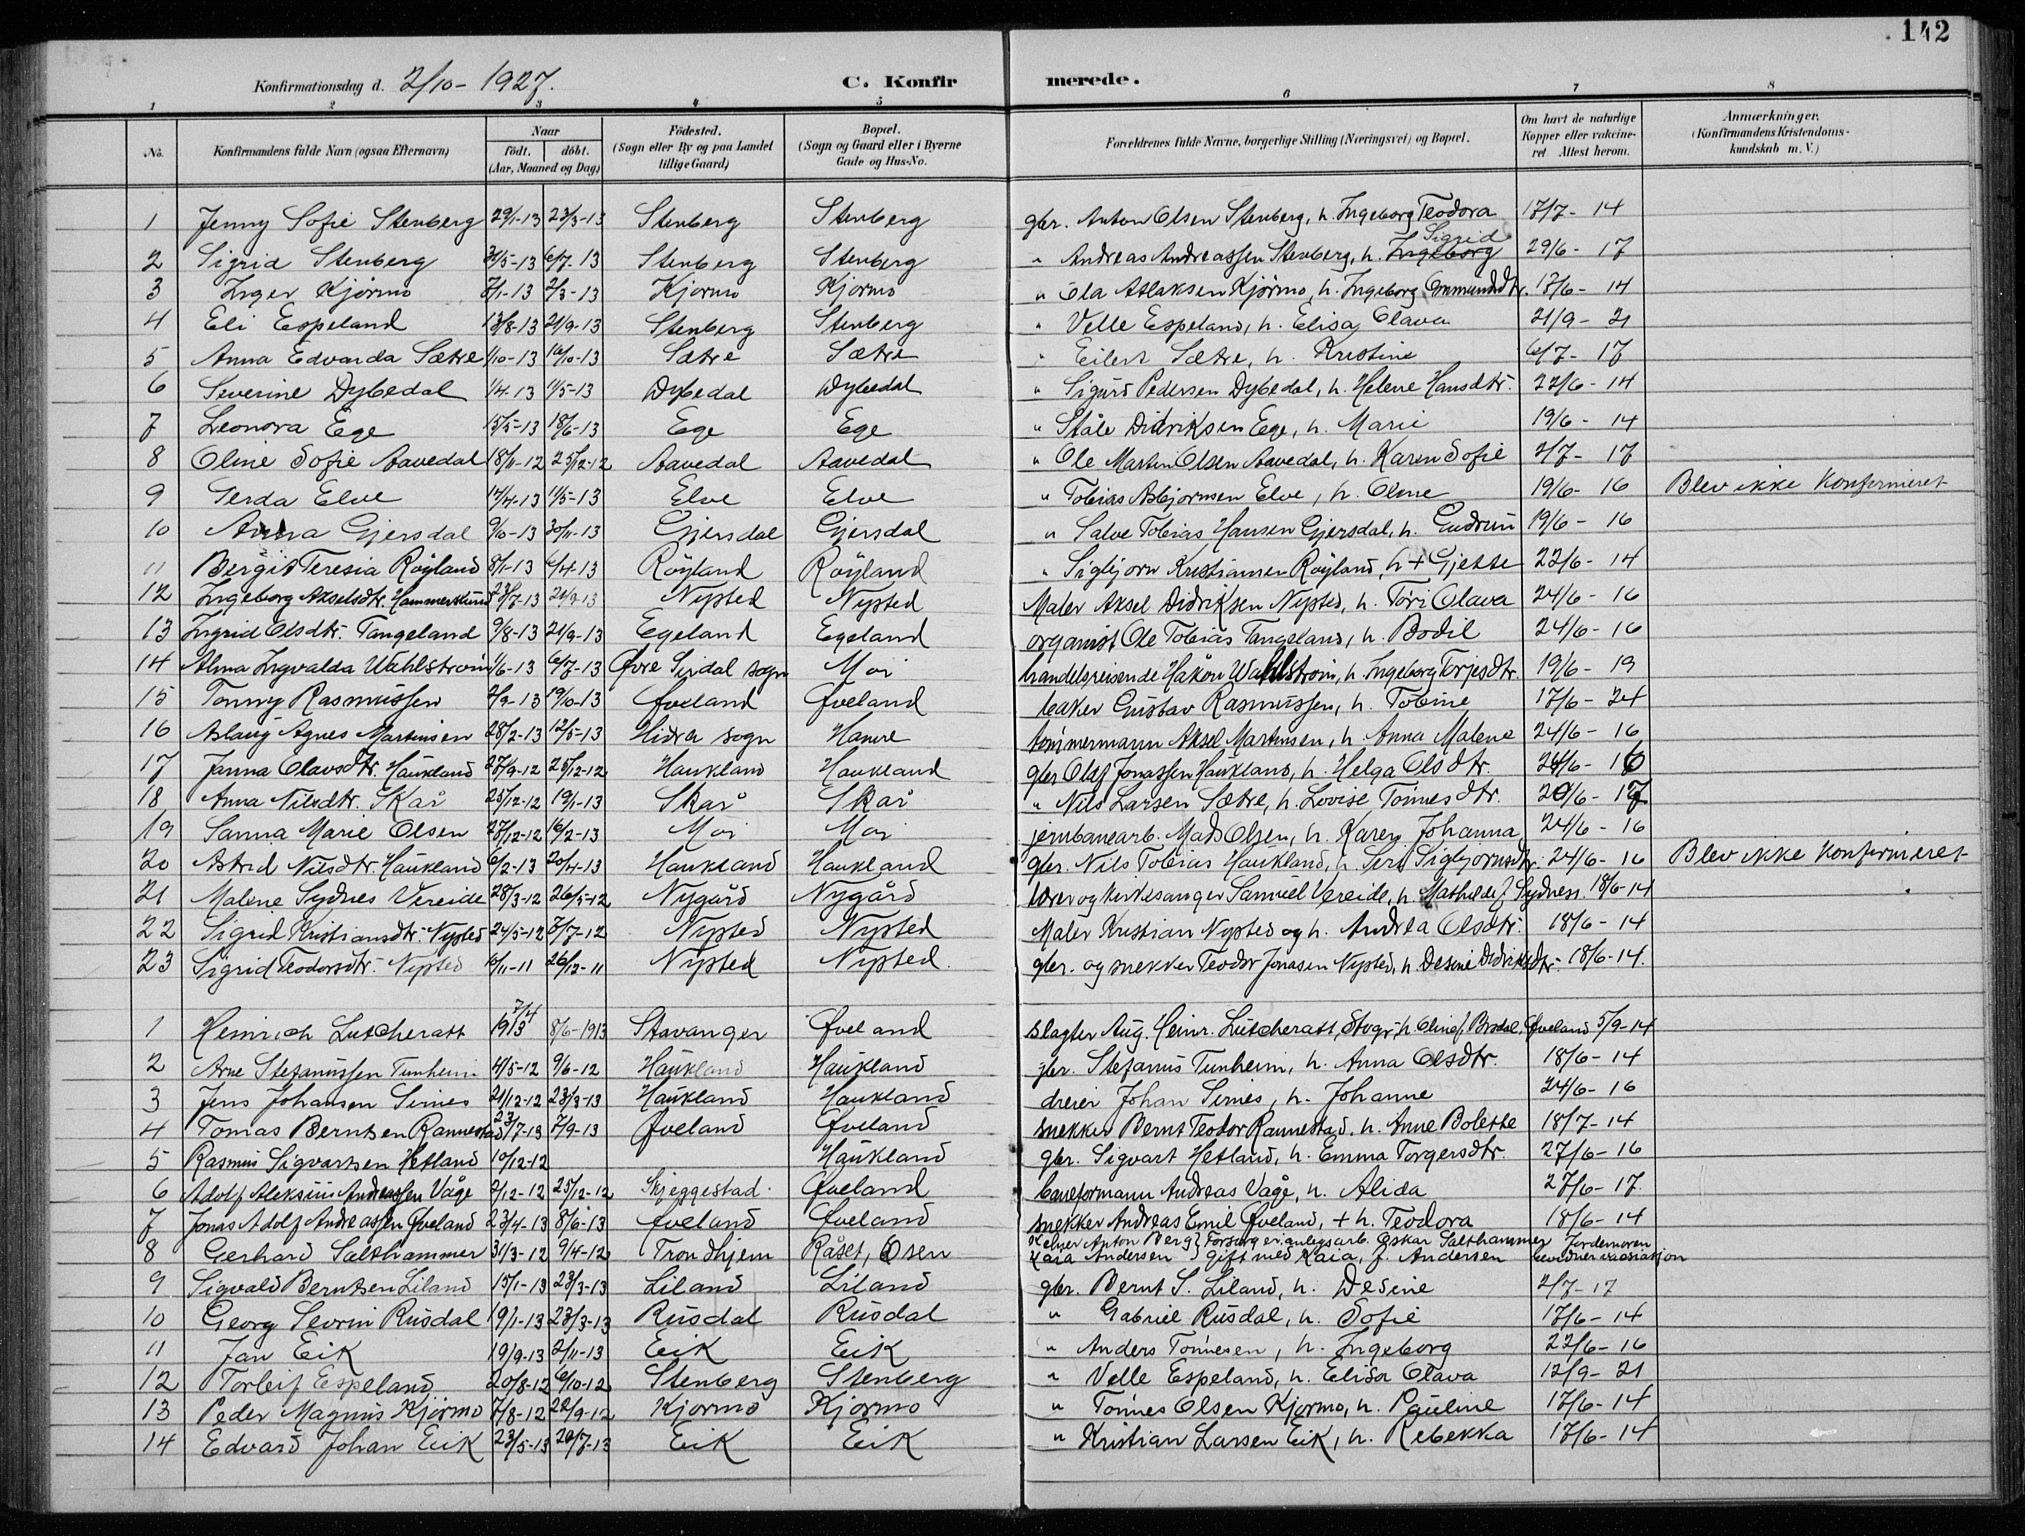 142
Konfirmationsdag d. 2/10 - 1927. C. Konfirmerede.
1 2 3 4 5 6 7 8
No. Konfirmandens fulde Navn (ogsaa Efternavn) Naar født. døbt. (Aar, Maaned og Dag) Fødested. (Sogn eller By og paa Landet tillige Gaard) Bopæl. (Sogn og Gaard eller i Byerne Gade og Hus-No. Forældrenes fulde Navne, borgerlige Stilling (Næringsvei) og Bopæl. Om havt de naturlige Kopper eller vakcineret. Attest herom. Anmærkninger. (Konfirmandens Kristendomskundskab m. V.)
1 Jenny Sofie Stenberg 29/1-13 23/3-13 Stenberg Stenberg gbr. Anton Olsen Stenberg, h. Ingeborg Teodora 17/7- 14
2 Sigrid Stenberg 31/5-13 6/7-13 Stenberg Stenberg " Andreas Andreassen Stenberg, h. Ingeborg Sigrid 29/6- 17
3 Inger Kjørmo 7/1-13 2/3-13 Kjørmo Kjørmo " Ola Atlaksen Kjørmo, h. Ingeborg Ommundsdtr. 17/6- 14
4 Eli Espeland 13/8-13 21/9-13 Stenberg Stenberg " Velle Espeland, h. Elisa Olava 21/9- 21
5 Anna Edvarda Sætre 1/10-13 16/10-13 Sætre Sætre " Eilert Sætre, h. Kristine 6/7- 17
6 Severine Dybedal 1/4-13 1/5-13 Dybedal Dybedal " Sigurd Pedersen Dybedal, h. Helene Hansdtr. 22/6- 14
7 Leonora Ege 15/5-13 18/6-13 Ege Ege " Ståle Didriksen Ege, h. Marie 19/6- 14
8 Oline Sofie Aavedal 18/11-12 25/12-12 Aavedal Aavedal " Ole Marten Olsen Aavedal, h. Karen Sofie 2/7- 17
9 Gerda Elve 14/4-13 1/5-13 Elve Elve " Tobias Asbjørnsen Elve, h. Oline 19/6- 16 Blev ikke Konfirmeret
10 Anna Gjersdal 9/10-13 30/11-13 Gjersdal Gjersdal " Salve Tobias Hansen Gjersdal, h. Gudrun 19/6- 16
11 Bergit Teresia Røyland 8/1-13 6/4-13 Røyland Røyland " Sigbjørn Kristiansen Røyland, h + Gjette 22/6- 14
12 Ingeborg Akselsdtr. Hammersland 23/7-13 21/9-13 Nysted Nysted Maler Aksel Didriksen Nysted, h. Tori Olava 24/6- 16
13 Ingrid Olsdtr. Tangeland 9/8-13 21/9-13 Egeland Egeland organist Ole Tobias Tangeland, h. Bodil 24/6- 16
14 Alma Ingvalda Wahlstrøm 1/6-13 6/7-13 Øvre Sirdal sogn Moi handelsreisende Håkon Wahlstrøm, h. Ingeborg Torjesdtr. 19/6- 19
15 Tonny Rasmussen 2/9-13 19/10-13 Øveland Øveland baker Gustav Rasmussen, h. Tobine 17/6- 24
16 Aslaug Agnes Martinsen 28/2-13 12/5-13 Hidra sogn Hamre tømmermann Aksel Martinsen, h Anna Malene 24/6- 16
17 Janna Olavsdtr. Haukland 27/9-12 25/12-12 Haukland Haukland gbr Olaf Jonassen Haukland, h. Helga Olsdtr. 24/6- 16
18 Anna Nilsdtr. Skår 25/12-12 19/1-13 Skår Skår " Nils Larsen Sætre, h. Lovise Tønnesdtr. 20/6- 17
19 Sanna Marie Olsen 27/12-12 16/2-13 Moi Moi jernbanearb. Mads Olsen, h. Karen Johanna 24/6- 16
20 Astrid Nilsdtr. Haukland 6/2-13 20/4-13 Haukland Haukland gbr. Nils Tobias Haukland, h. Siri Sigbjørnsdtr. 24/6- 16 Blev ikke Konfirmeret
21 Malene Sydnes Vereide 28/3-12 26/5-12 Nygård Nygård lærer og kirkesanger Samuel Vereide, h. Mathilde f. Sydness. 18/6-14
22 Sigrid Kristiansdtr. Nysted 24/5-12 7/7-12 Nysted Nysted Maler Kristian Nysted og h. Andrea Olsdtr. 18/6- 14
23 Sigrid Teodorsdtr. Nysted 16/11-11 26/12-11 Nysted Nysted. gbr. og snekker Teodor Jonasen Nysted, h. Desine Didriksdtr. 18/6-14.
1 Heinrich Lutcheratt 7/4 1913 8/6-1913 Stavanger Øveland slagter Aug. Heinr. Lutcheratt, Stvgr., h Oline f. Brodal, Øveland 5/9-14
2 Arne Stefanussen Tunheim 4/5-12 9/6-12 Haukland Haukland gbr. Stefanus Tunheim, h. Anna Olsdtr. 18/6- 14
3 Jens Johansen Sirnes 21/12-12 23/3-13 Haukland Haukland dreier Johan Sirnes, h. Johanne 24/6- 16
4 Tomas Berntsen Rannestad 23/7-13 7/9-13 Øveland Øveland snekker Bernt Teodor Rannestad. h. Anne Bolette 18/7- 14
5 Rasmus Sigvartsen Hetland 10/12-12 Haukland gbr. Sigvart Hetland, h. Emma Torgersdtr. 27/6- 16
6 Adolf Aleksius Andreassen Våge 2/12-12 25/12-12 Skjeggestad. Øveland baneformann Andreas Våge, h. Alida 27/6- 17.
7 Jonas Adolf Andreassen Øveland 23/4-13 8/6-13 Øveland Øveland snekker Andreas Emil Øveland, + h. Teodora 18/6- 14
8 Gerhard Salthammer 31/3-12 9/4-12 Trondhjem Råset, Osen Kelner Anton Berg } Forsørger: anlegsarb. Oskar Salthammer
Kaia Andersen } gift med Kaia, f. Andersen
9 Sigvald Berntsen Liland 15/1-13 23/3-13 Liland Liland gbr. Bernt S. Liland, h. Desine 2/7-17
10 Georg Sevrin Rusdal 19/1-13 23/3-13 Rusdal Rusdal " Gabriel Rusdal, h. Sofie 17/6- 14
11 Jan Eik 19/9-13 2/11-13 Eik Eik " Anders Tønnesen, h. Ingeborg 22/6- 16
12 Torleif Espeland. 20/8-12 6/10-12 Stenberg Stenberg " Velle Espeland, h. Elisa Olava 12/9- 21
13 Peder Magnus Kjørmo 7/8-12 22/9-12 Kjørmo Kjørmo " Tønnes Olsen Kjørmo, h. Pauline 17/6- 14
14 Edvard Johan Eik 23/5-13 20/7-13 Eik Eik " Kristian Larsen Eik, h. Rebekka 17/6- 14